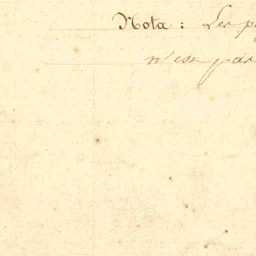 Nota : Les p
n'en pas